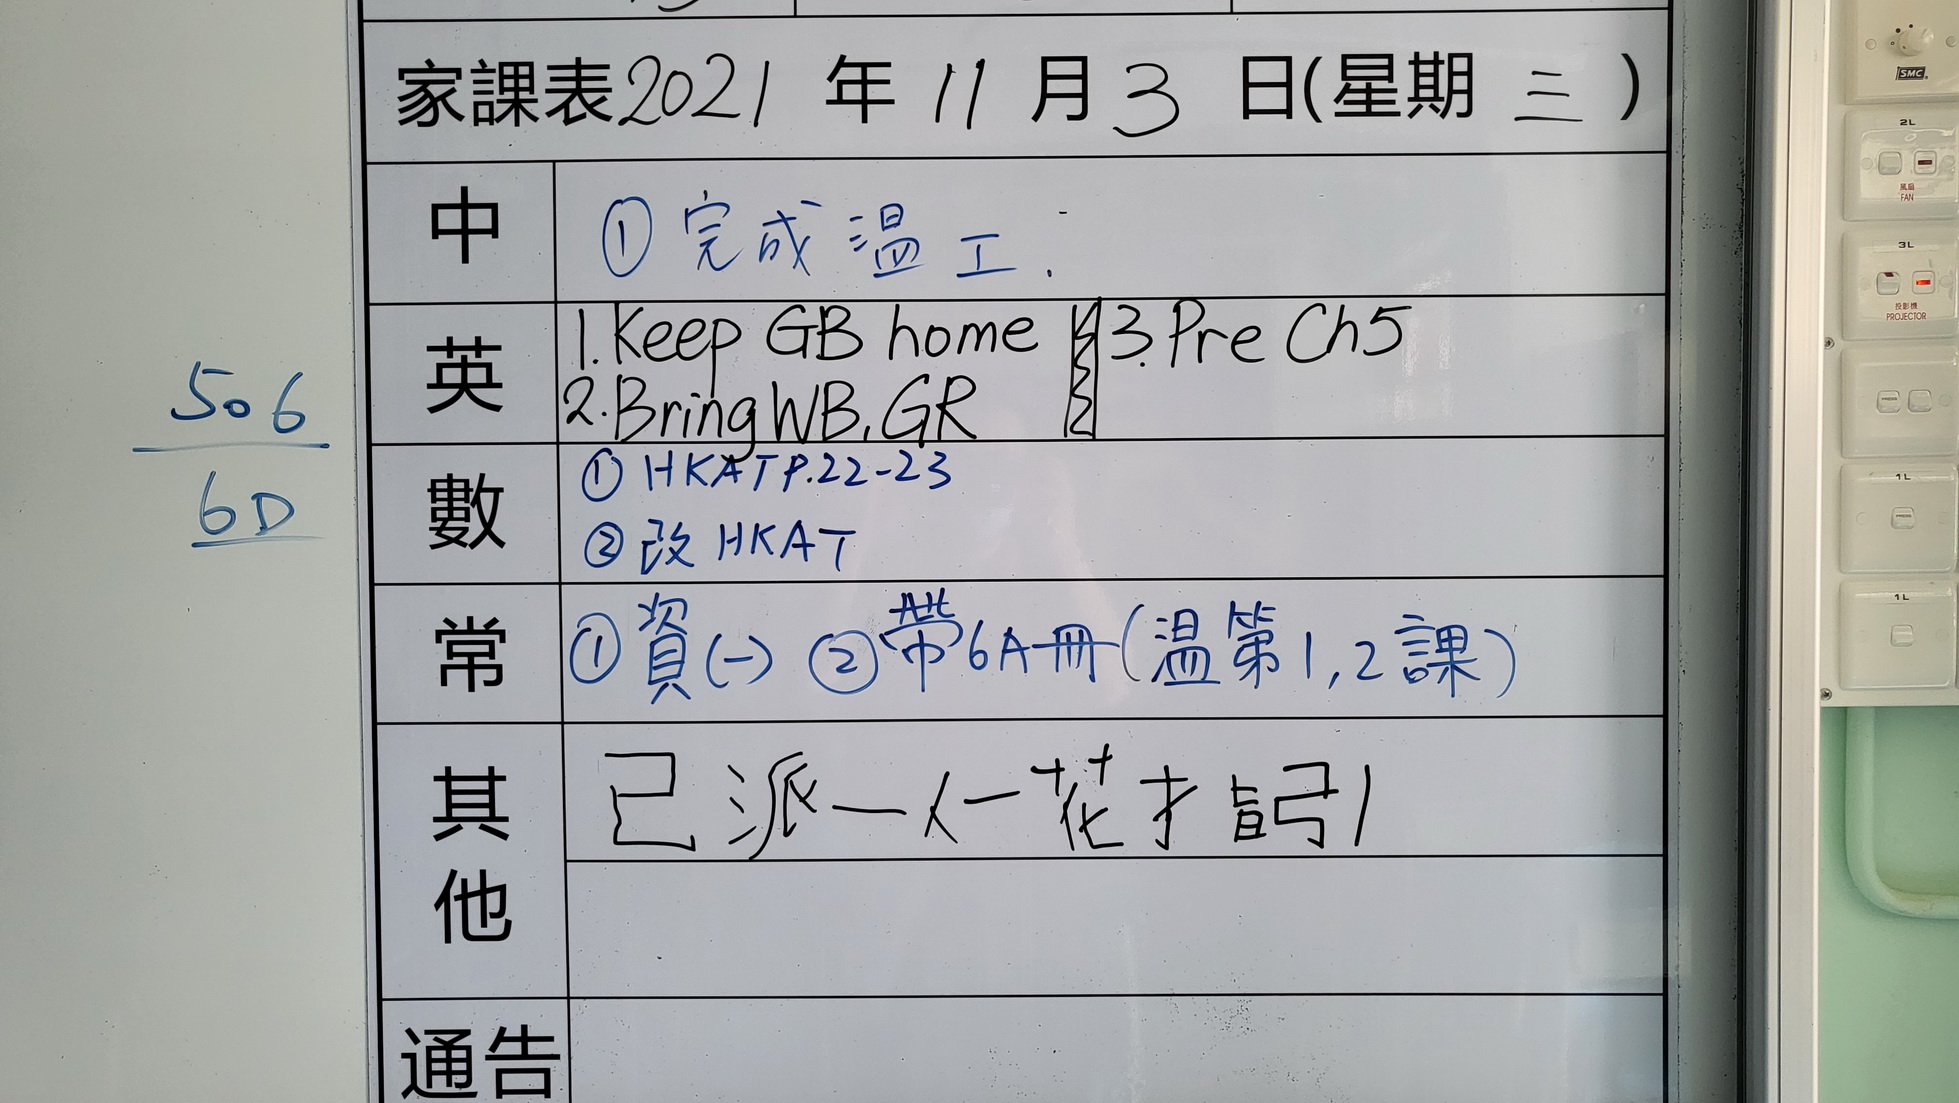 家課表2021 年 11 月 3 日(星期 三 )
中
① 完成 溫工.
英
1. Keep GB home
2. Bring WB, GR
3. Pre Ch5
數
① HKAT P.22-23
② 改 HKAT
常
① 資(一) ② 帶6A冊(溫第1,2課)
其他
已派一人一花
通告
506
6D
SMC
2L
風扇
FAN
3L
投影機
PROJECTOR
1L
1L